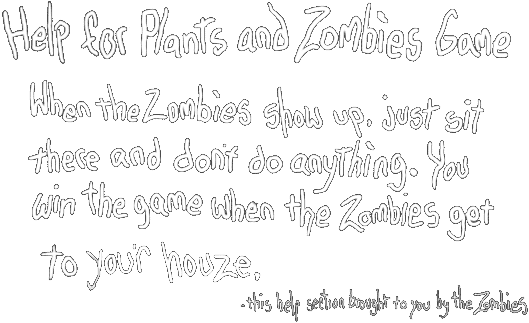 Help for Plants and Zombies Game
When the Zombies show up, just sit
there and don't do anything. You
win the game when the Zombies get
to your houze.
-this help section brought to you by the Zombies